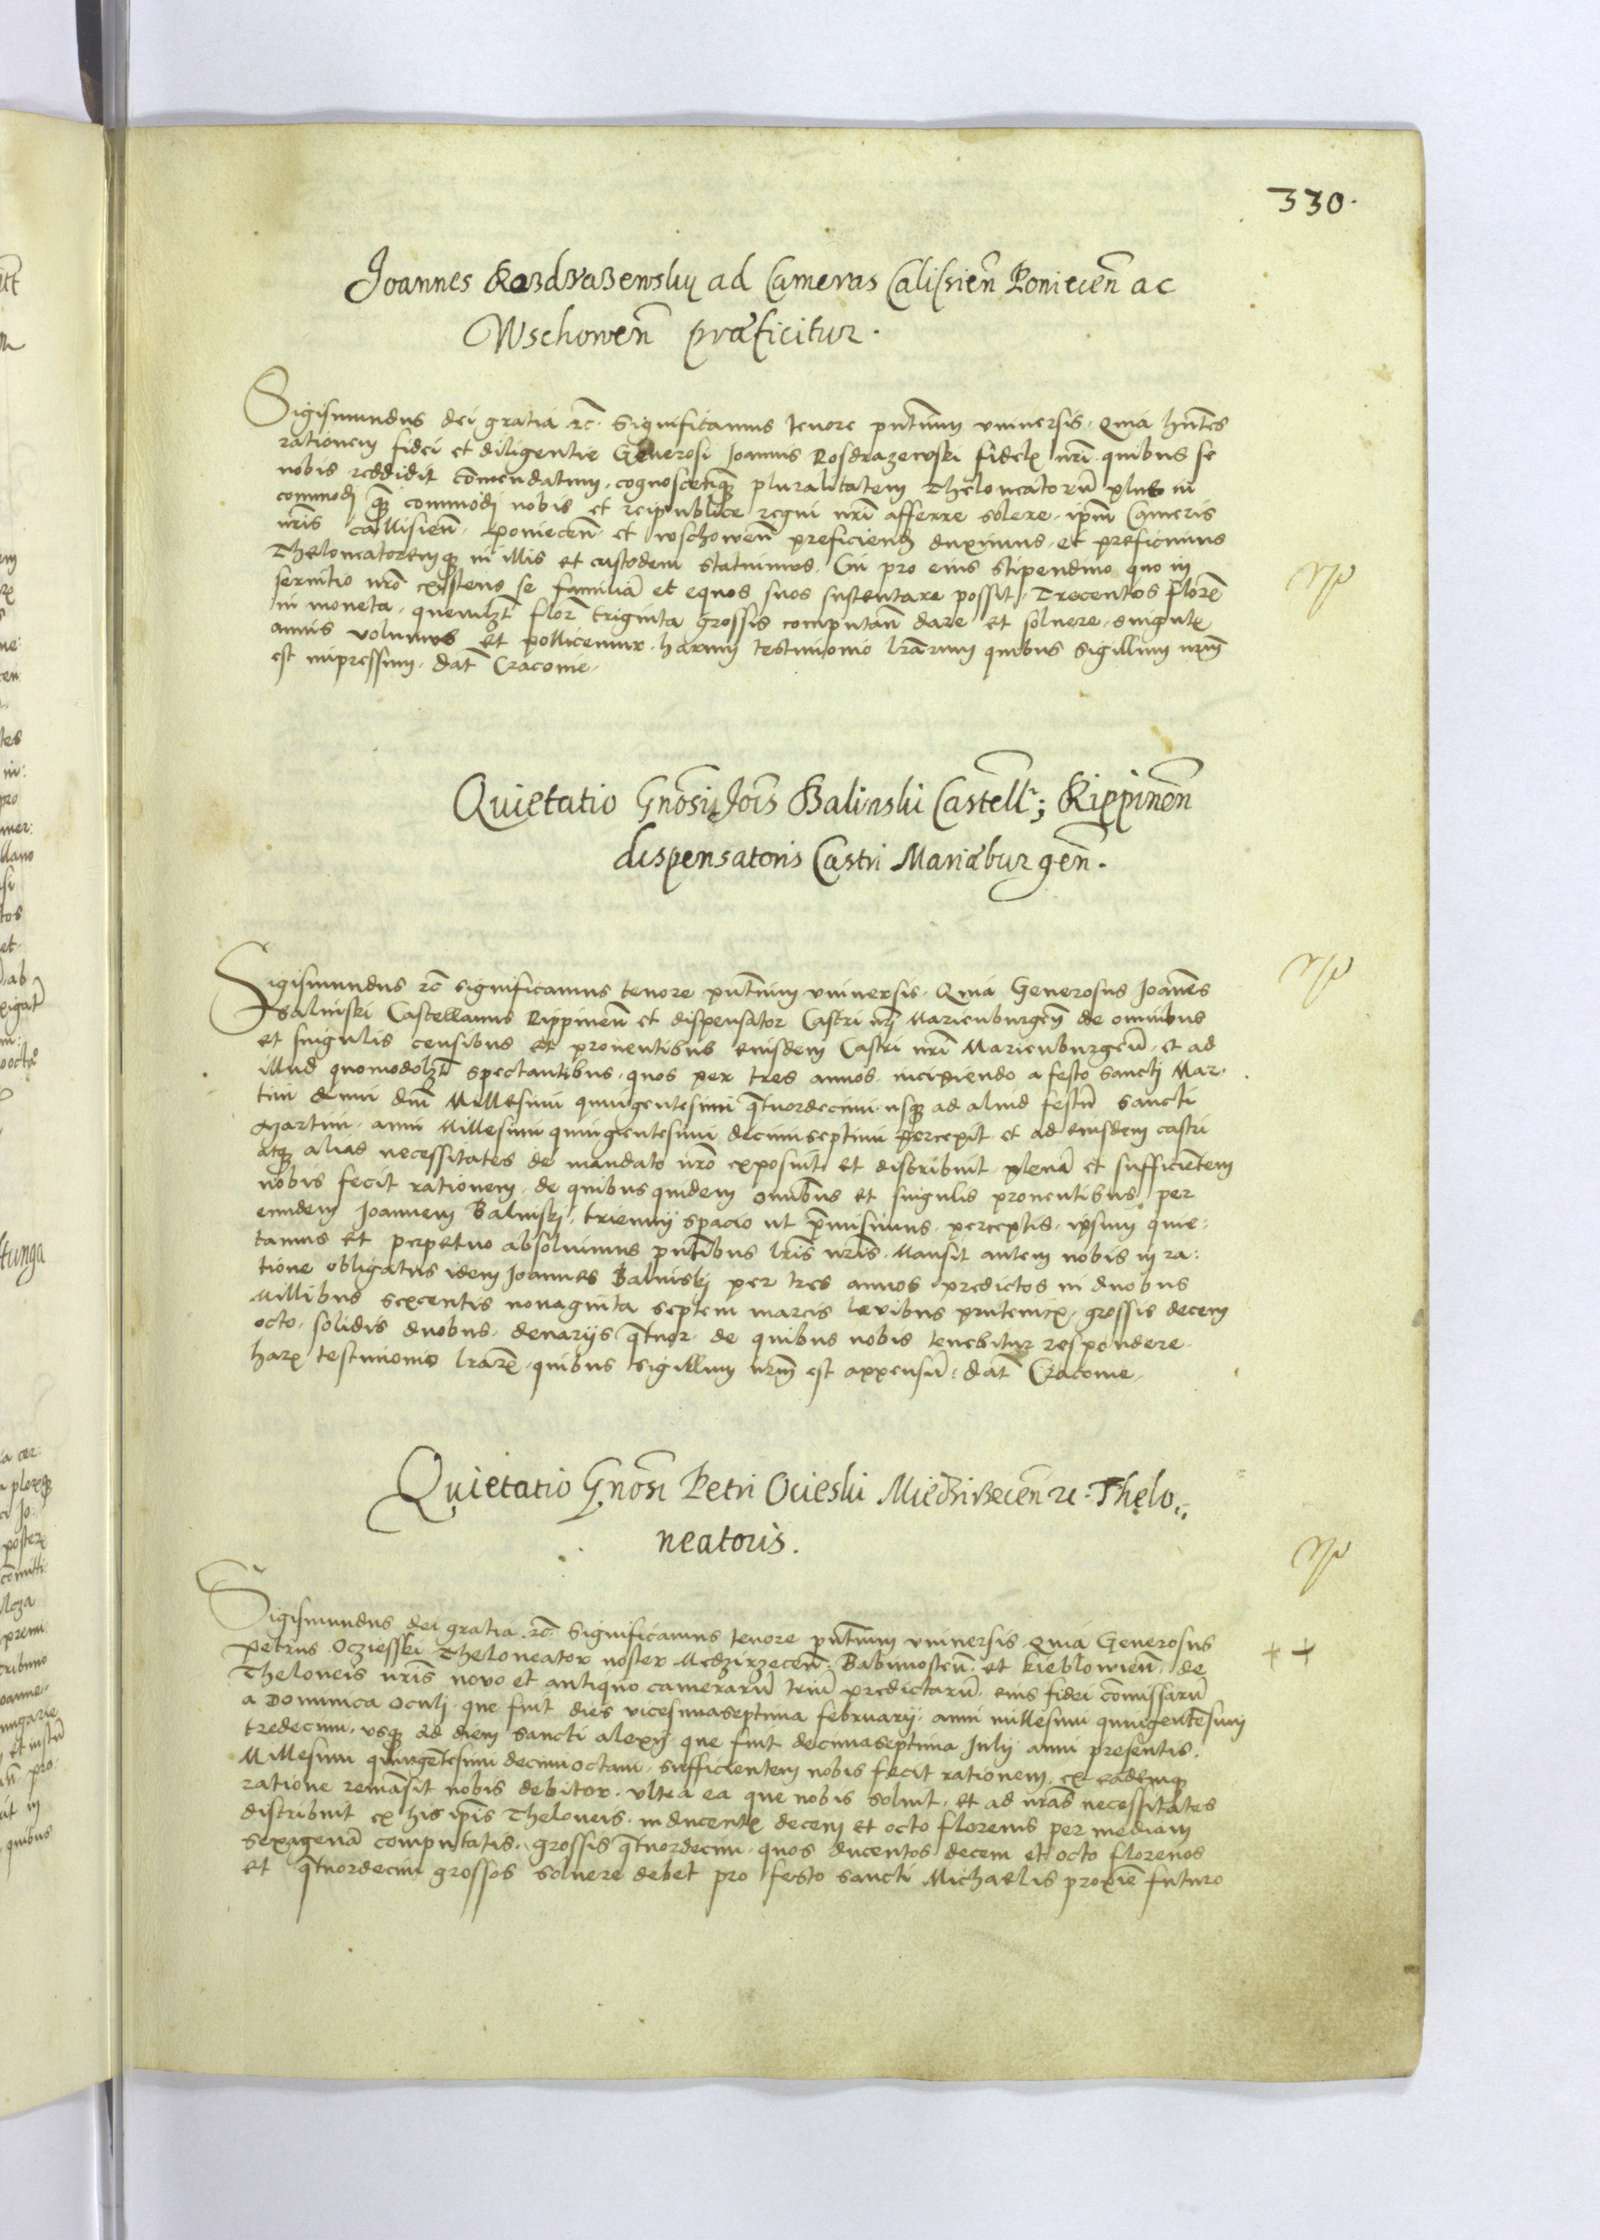 330.
Joannes Rozdrazenskij ad Cameras Calisien̄ Poniecen̄ ac
Wschowen̄ præficitur.
Sigismundus dei gratia rc̄. Significamus tenore pn̄tium universis. Quia hn̄tes
rationem fidei et diligentie Generosi Joannis Rosdrazewski fidel nr̄i quibus se
nobis reddidit com̄endatum, cognoscetiq pluralitatem Theloneatorū plus in
commodi q̄ commodi nobis et reipublice regni nr̄i afferre solere. ipm̄ Cameris
nr̄is Callisien̄. poniecen̄ et wschowen̄ preficiend duximus. et preficimus
Theloneatoremq in illis et custodem statuimus. Cui pro eius stipendio quo in
servitio nr̄o existens se familiā et equos suos sustentare possit, Trecentos floren̄
in moneta, quemlzt flor̄ triginta grossis computan̄ dare et solvere singul
annis volumus et pollicemur. harum testimonio lr̄arum quibus sigillum nrm̄
est impressum. dat̄ Cracovie.
Quietatio Gnōsi Jois Balinski Castell; Rippinen̄
dispensatoris Castri Mariæburgen̄.
Sigismundus rc̄ significamus tenore pn̄tium universis. Quia Generosus Joannēs
Balinski Castellanus Rippinen̄ et dispensator Castri nrj Marienburgen̄ de omnibus
et singulis censibus et proventibus eiusdem Castri nr̄i Marienburgen̄. et ad
illud quomodolzt spectantibus. quos per tres annos. incipiendo a festo sancti Mar-
tini anni dnī Millesimi quingentesimi qtuordecimi. usq ad aliud festū sancti
Martini. anni Millesimi quingentesimi decimiseptimi percepit. et ad eiusdem castri
atq alias necessitates de mandato nr̄o exposuit et distribuit. plenā et sufficientem
nobis fecit rationem. de quibus quidem omībus et singulis proventibus per
eundem Joannem Balinskj, triennij spacio ut p̄misimus. perceptis. ipsum quie-
tamus et perpetuo absolvimus pn̄tibus lr̄is nr̄is. Mansit autem nobis in ra-
tione obligatus idem Joannes Balinskj per tres annos predictos in duobus
Millibus sexcentis nonaginta septem marcis levibus prutenicx, grossis decem
octo. solidis duobus. denarijs qtuor. de quibus nobis tenebitur respondere.
harx testimonio lr̄arx. quibus sigillum nrm̄ est appensū: dat̄ Cracovie.
Quietatio Gnōsi Petri Ocieski Miedzirzecen̄ rc. Thelo-
neatoris.
Sigismundus dei gratia rc̄. Significamus tenore pn̄tium universis Quia Generosus
Petrus Oczieski Theloneator noster Medzirzecen̄. Babimosten̄. et kieblowien̄. de
Theloneis nr̄is novo et antiquo camerarū triū predictarū. eius fidei com̄issarū
a Dominica Oculj. que fuit dies vicesimaseptima februarij. anni millesimi quingentesimi
tredecimi, usq ad diem sancti alexij que fuit decimaseptima Julij anni presentis.
Millesimi quingēntesimi decimioctavi. Sufficientem nobis fecit rationem. ex eademq
ratione remāsit nobis debitor. ultra ea que nobis solvit. et ad nr̄as necessitates
distribuit ex his ip̄is Theloneis. in ducentx decem et octo florenis per mediam
sexagenā computatis. grossis qtuordecim. quos ducentos decem et octo florenos
et qtuordecim grossos solvere debet pro festo sancti Michaelis proxīe futuro